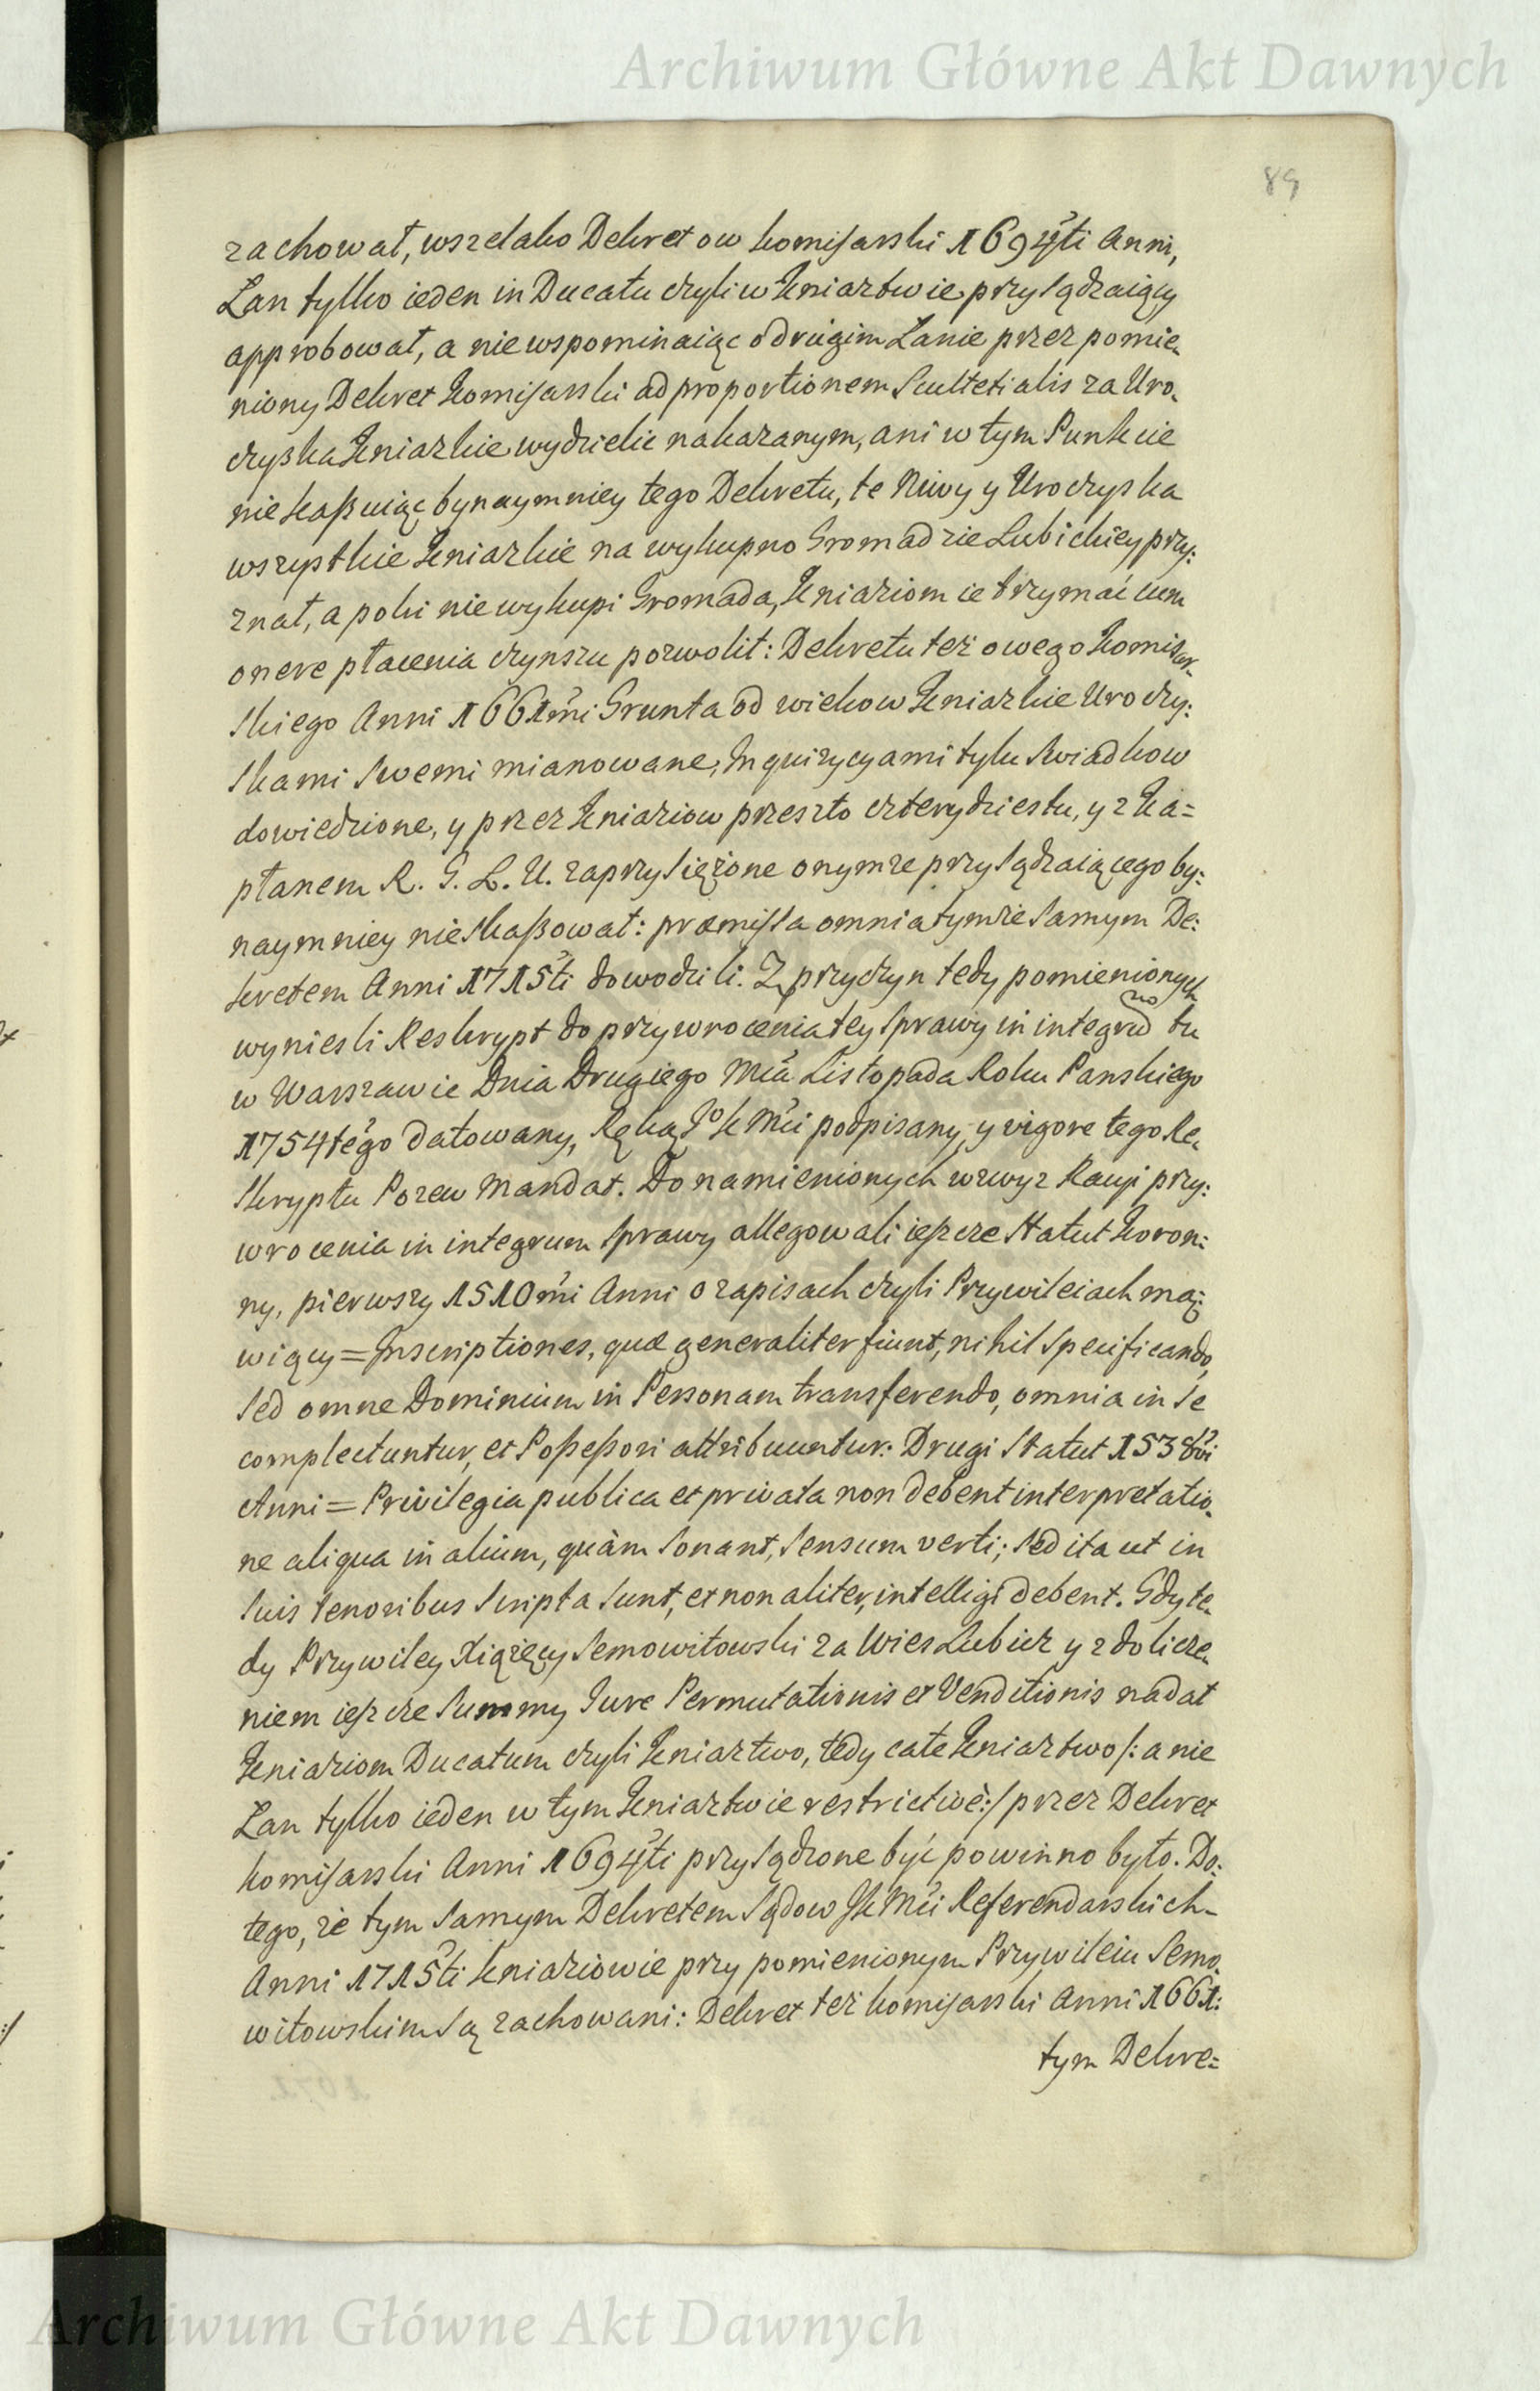 Archiwum Główne Akt Dawnych
89
zachował, wszelako Dekret ow komisarski 1694ti Anni,
Łan tylko ieden in Ducatu czyli w Kniaztwie przysądzaiący
approbował, a nie wspominaiąc o drugim Łanie przez pomie-
niony Dekret Komisarski ad proportionem Scultetialis za Uro-
czyska Kniazkie wydzielić nakazanym, ani w tym Punkcie
nie kaßuiąc bynaymniey tego Dekretu, te Niwy y Uroczyska
wszystkie Kniazkie na wykupno Gromadzie Lubickiey przy:
znał, a poki nie wykupi Gromada, Kniaziom ie trzymać cum
onere płacenia czynszu pozwolił: Dekretu też owego Komisar-
skiego Anni 1661mi Grunta od wiekow Kniazkie Uroczy:
skami swemi mianowane, Inquizycyami tylu Swiadkow
dowiedzione, y przez Kniaziow przeszło czterydziestu, y z Ka=
płanem R. G. L. U. zaprzysiężone onymże przysądzaiącego by:
naymniey nie skaßował: præmissa omnia tymże samym De:
kretem Anni 1715ti dowodzili. Z przyczyn tedy pomienionych
wyniesli Reskrypt do przywrocenia tey sprawy in integrum tu
w Warszawie Dnia Drugiego Mca Listopada Roku Panskiego
1754tego datowany, Ręką Jo K Mci podpisany, y vigore tego Re-
skryptu Pozew Mandat. Do namienionych wzwyz Racyi przy:
wrocenia in integrum sprawy allegowali ieszcze Statut Koron:
ny, pierwszy 1510mi Anni o zapisach czyli Przywileiach mo:
wiący = Inscriptiones, quæ generaliter fiunt, nihil specificando,
sed omne Dominium in Personam transferendo, omnia in se
complectuntur, et Poßeßori attribuuntur: Drugi Statut 1538vi
Anni = Privilegia publica et privata non debent interpretatio-
ne aliqua in alium, quàm sonant, sensum verti; sed ita ut in
suis tenoribus scripta sunt, et non aliter, intelligi debent. Gdy te-
dy Przywiley Xiążęcy Semowitowski za Wies Lubicz y z dolicze-
niem ieszcze Summy Jure Permutationis et Venditionis nadał
Kniaziom Ducatum czyli Kniaztwo, tedy całe Kniaztwo /: a nie
Łan tylko ieden w tym Kniaztwie restrictivè:/ przez Dekret
komisarski Anni 1694ti przysądzone być powinno było. Do:
tego, że tym samym Dekretem Sądow JK Mci Referendarskich
Anni 1715ti Kniaziowie przy pomienionym Przywileiu Semo-
witowskim są zachowani: Dekret też komisarski Anni 1661:
tym Dekre=
Archiwum Główne Akt Dawnych